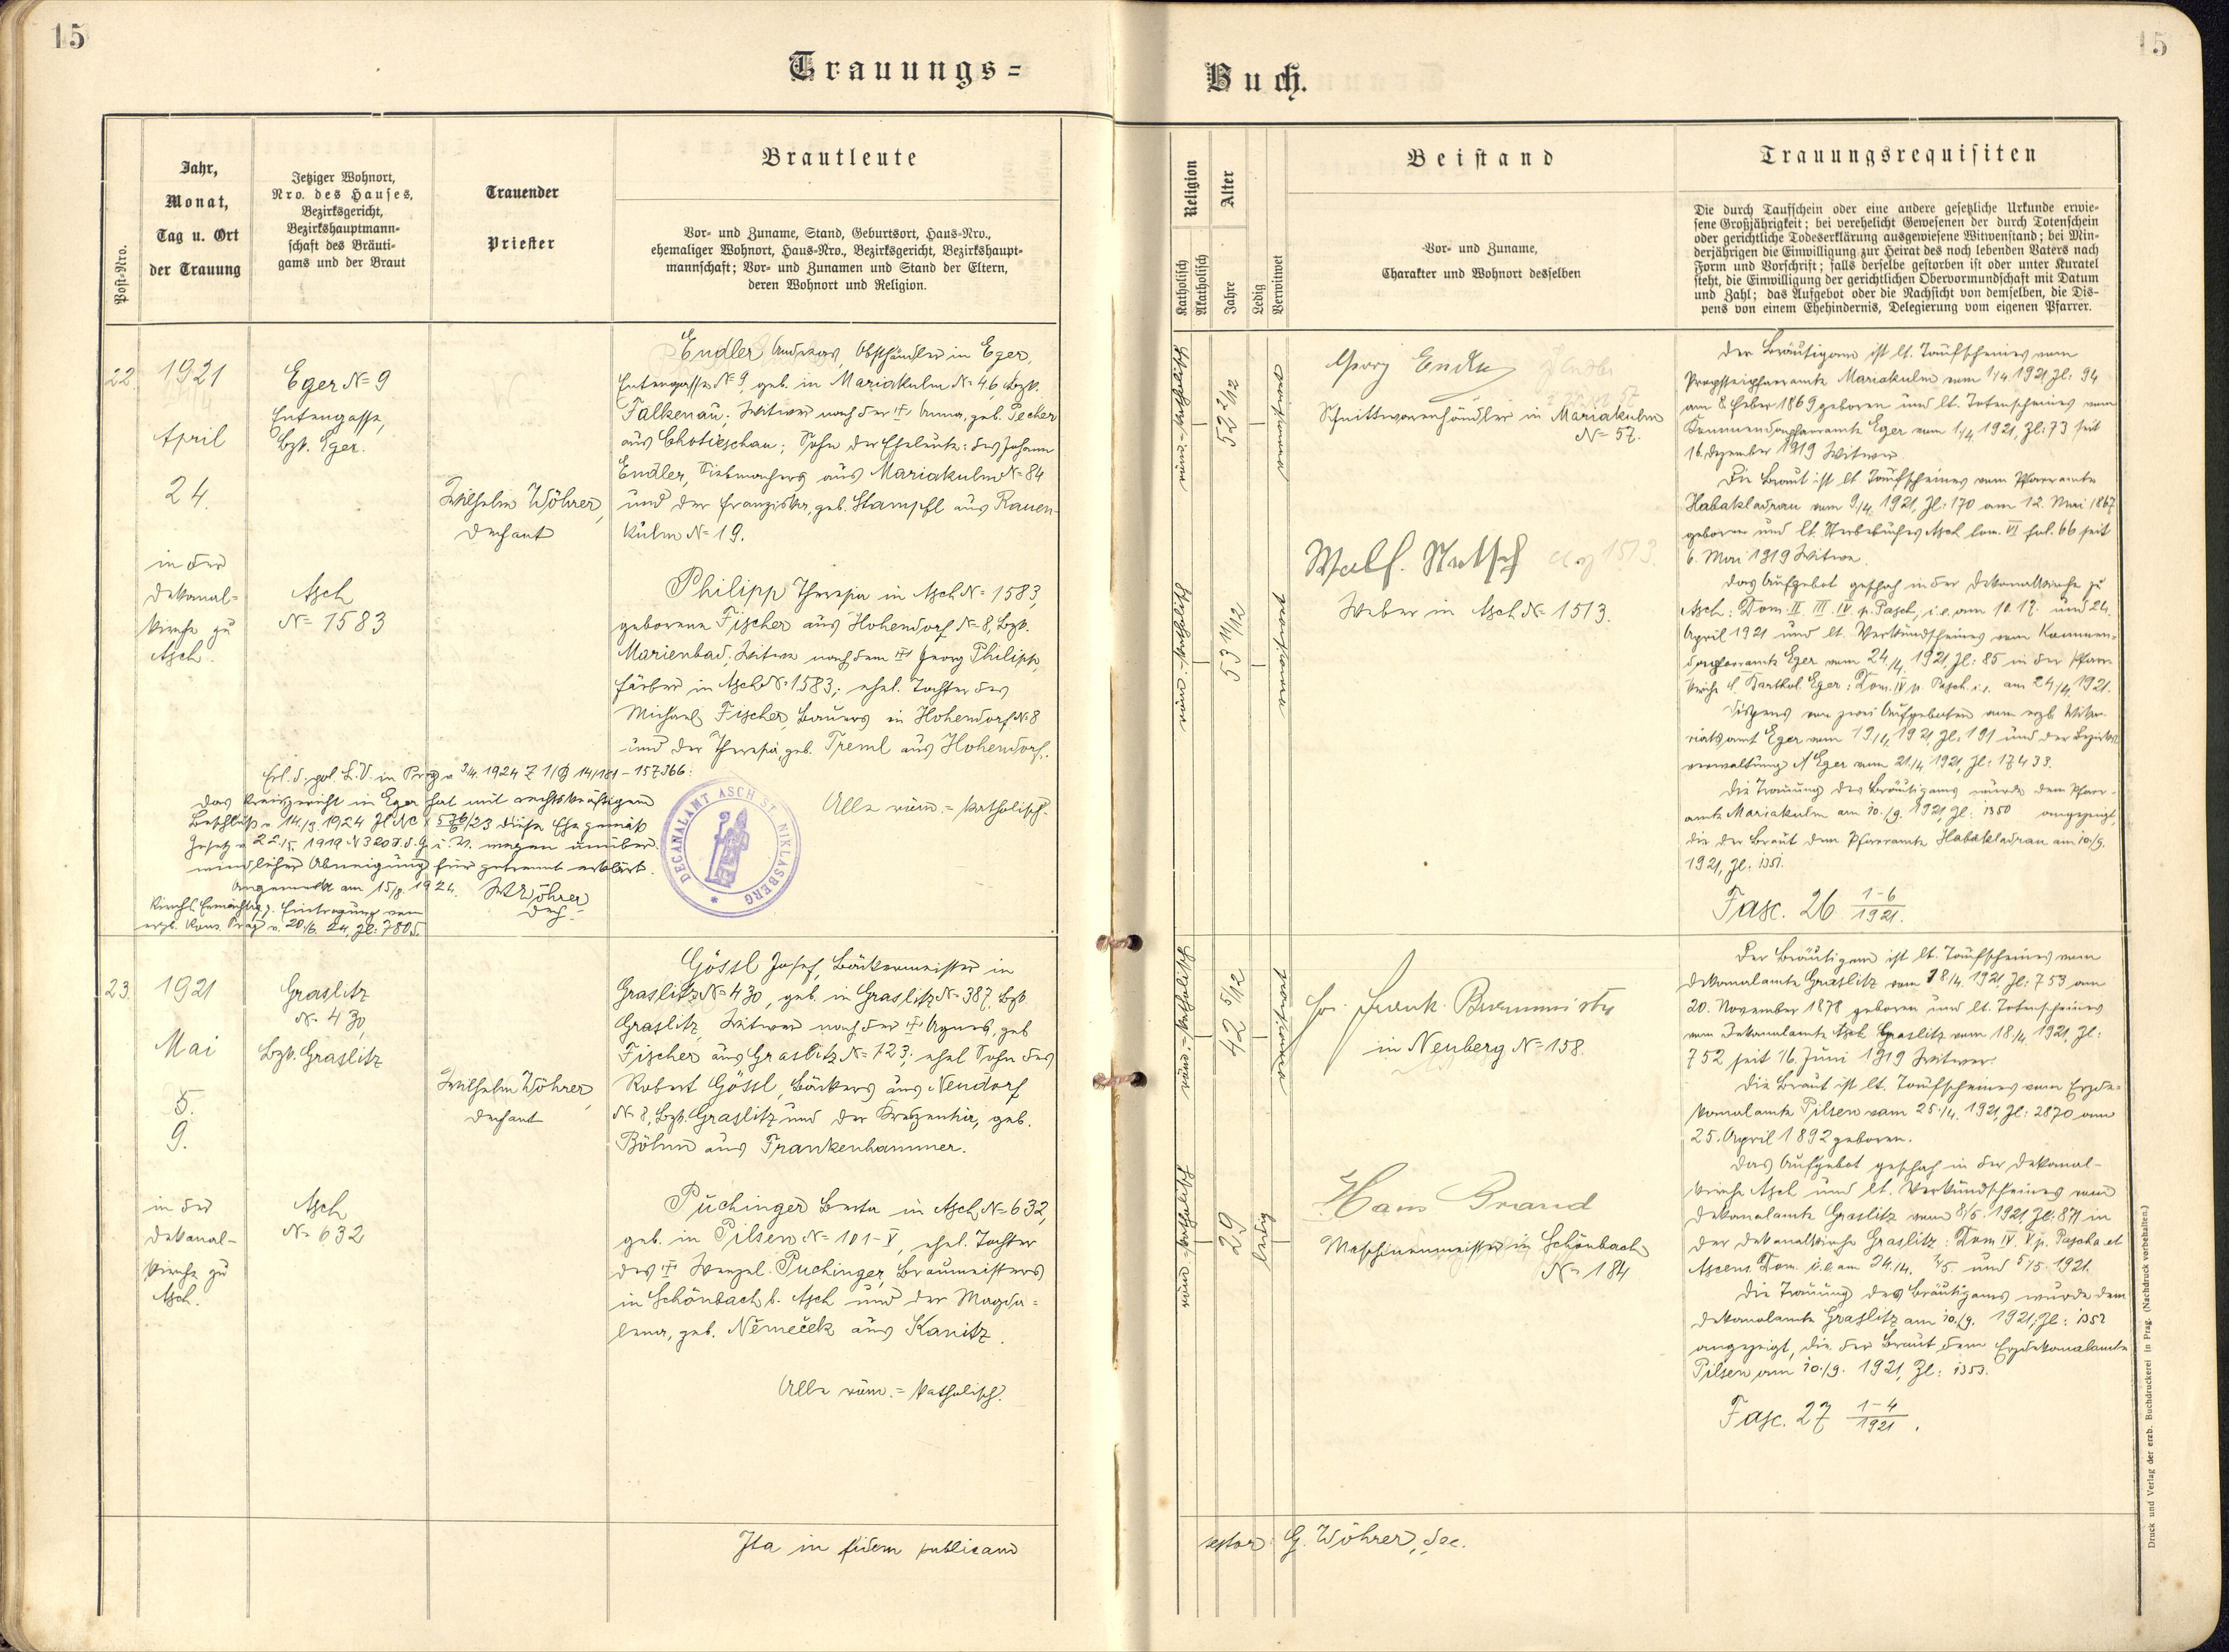 15
15
Trauungs=
Buch.
Post-Nro.
Jahr,
Monat,
Tag u. Ort
der Trauung
Jetziger Wohnort,
Nro. des Hauses,
Bezirksgericht,
Bezirkshauptmann-
schaft des Bräuti-
gams und der Braut
Trauender
Priester
Brautleute
Vor- und Zuname, Stand, Geburtsort, Haus-Nro.,
ehemaliger Wohnort, Haus-Nro., Bezirksgericht, Bezirkshaupt-
mannschaft; Vor- und Zunamen und Stand der Eltern,
deren Wohnort und Religion.
Religion
Katholisch
Akatholisch
Alter
Jahre
Ledig
Verwitwet
Beistand
Vor- und Zuname,
Charakter und Wohnort desselben
Trauungsrequisiten
Die durch Taufschein oder eine andere gesetzliche Urkunde erwie-
sene Großjährigkeit; bei verehelicht Gewesenen der durch Totenschein
oder gerichtliche Todeserklärung ausgewiesene Witwenstand; bei Min-
derjährigen die Einwilligung zur Heirat des noch lebenden Vaters nach
Form und Vorschrift; falls derselbe gestorben ist oder unter Kuratel
steht, die Einwilligung der gerichtlichen Obervormundschaft mit Datum
und Zahl; das Aufgebot oder die Nachsicht von demselben, die Dis-
pens von einem Ehehindernis, Delegierung vom eigenen Pfarrer.
22.
1921
April
24.
in der
Dekanal-
kirche zu
Asch.
Eger N= 9
Entengasse,
Bzk. Eger.
Asch
N= 1583
Wilhelm Wöhrer,
Dechant
Endler Andreas, Obsthändler in Eger,
Entengasse N= 9, geb. in Mariakulm N= 46, Bzk.
Falkenau; Witwer nach der † Anna, geb. Pecher
aus Chotieschau; Sohn der Eheleute: des Johann
Endler, Siebmachers aus Mariakulm N= 84
und der Franziska, geb. Stampfl aus Rauen-
kulm N= 19.
Philipp Theresia in Asch N= 1583,
geborene Fischer aus Hohendorf N= 8, Bzk.
Marienbad, Witwe nach dem † Georg Philipp,
Färber in Asch N= 1583; ehel. Tochter des
Michael Fischer, Bauers in Hohendorf N= 8
und der Theresia, geb. Treml aus Hohendorf.
Alle röm.=katholisch.
DECANALAMT ASCH ST. NIKLASBERG
Erl. d. pol. L.V. in Prag v. 3/4. 1924 Z 1/B 14/181 - 157366:
Das Kreisgericht in Eger hat mit rechtskräftigem
Beschluß v. 14./3. 1924 Zl Nc I 576/23 diese Ehe gemäß
Gesetz v. 22./5. 1919 N 320 S.d.G. u. V. wegen unüber-
windlicher Abneigung für getrennt erklärt.
Angemerkt am 15/8. 1924. W Wöhrer
Dech.
Kirchl. Ermächtig. z. Eintragung vom
erzb. Kons. Prag v. 20./6. 24, Zl: 7805.
römisch-katholisch
52 2/12
verwitwet
53 11/12
verwitwet
Georg Endler
Schnittwarenhändler in Mariakulm
N= 57.
Weber in Asch N= 1513.
Der Bräutigam ist lt. Taufscheines vom
Propsteipfarramte Mariakulm vom 1/4. 1921 Zl: 94
am 8. Feber 1869 geboren und lt. Totenscheines vom
Kommendapfarramte Eger vom 1/4 1921, Zl: 73 seit
16. Dezember 1919 Witwer.
Die Braut ist lt Taufscheines vom Pfarramte
Habakladrau vom 9/4. 1921, Zl: 170 am 12. Mai 1867
geboren und lt. Sterbebuches Asch tom. VI fol. 66 seit
6. Mai 1919 Witwe.
Das Aufgebot geschah in der Dekanalkirche zu
Asch: Dom. II. III. IV. p. Pasch, i.e. am 10. 17. und 24.
April 1921 und lt. Verkündscheines vom Kommen-
dapfarramte Eger vom 24./4. 1921, Zl: 85 in der Pfarr-
kirche St. Barthol. Eger: Dom. IV p. Pasch. i.e. am 24./4. 1921.
Dispens von zwei Aufgeboten vom erzb. Vika-
riatsamt Eger vom 19/4. 1921, Zl: 191 und der Bezirks-
verwaltung Eger vom 21./4. 1921, Zl: 17433.
Die Trauung des Bräutigams wurde dem Pfarr-
amte Mariakulm am 10./9. 1921, Zl: 1350 angezeigt,
die der Braut dem Pfarramte Habakladrau am 10/9.
1921, Zl: 1351.
Fasc. 26 1-6/1921.
23.
1921
Mai
5.
9.
in der
Dekanal-
kirche zu
Asch.
Graslitz
N= 430
Bzk. Graslitz
Asch
N= 632
Wilhelm Wöhrer,
Dechant
Gössl Josef, Bäckermeister in
Graslitz N= 430, geb. in Graslitz N= 387, Bzk.
Graslitz, Witwer nach der † Agnes, geb
Fischer aus Graslitz N= 723; ehel. Sohn des
Robert Gössl, Bäckers aus Neudorf
N= 8, Bzk. Graslitz und der Kreszentia, geb.
Böhm aus Frankenhammer.
Puchinger Berta in Asch N= 632,
geb. in Pilsen N= 101-V, ehel. Tochter
des † Wenzel Puchinger, Braumeisters
in Schönbach b. Asch und der Magda=
lena, geb. Němeček aus Kanitz.
Alle röm.=katholisch.
römisch-katholisch
42 5/12
verwitwet
29
ledig
in Neuberg N= 158.
Hans Brand
Maschinenmeister in Schönbach
N= 184
Der Bräutigam ist lt. Taufscheines vom
Dekanalamte Graslitz vom 18/4. 1921, Zl: 753 am
20. November 1878 geboren und lt. Totenscheines
vom Dekanalamte Graslitz vom 18./4. 1921, Zl:
752 seit 16. Juni 1919 Witwer.
Die Braut ist lt. Taufscheines vom Erzde=
kanalamte Pilsen vom 25./4. 1921, Zl: 2870 am
25. April 1892 geboren.
Das Aufgebot geschah in der Dekanal-
kirche Asch und lt. Verkündscheines vom
Dekanalamte Graslitz vom 8/5. 1921, Zl: 871 in
der Dekanalkirche Graslitz: Dom IV. V p. Pascha et
Ascens. Dom. i.e. am 24./4. 1/5. und 5./5. 1921.
Die Trauung des Bräutigams wurde dem
Dekanalamte Graslitz am 10./9. 1921, Zl: 1352
angezeigt, die der Braut dem Erzdekanalamte
Pilsen am 10./9. 1921, Zl: 1353.
Fasc. 27 1-4/1921.
Ita in fidem publicam
testor: G. Wöhrer, dec.
Druck und Verlag der erzb. Buchdruckerei in Prag. (Nachdruck vorbehalten.)